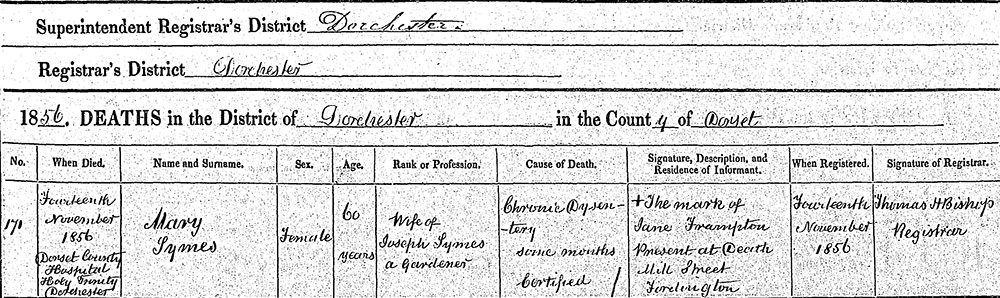 Superintendent Registrar's District Dorchester
Registrar's District Dorchester
1856. DEATHS in the District of Dorchester in the County of Dorset
No.
When Died.
Name and Surname.
Sex.
Age.
Rank or Profession.
Cause of Death.
Signature, Description, and
Residence of Informant.
When Registered.
Signature of Registrar.
171
Fourteenth
November
1856
Dorset County
Hospital
Holy Trinity
Dorchester
Mary
Symes
Female
60
years
Wife of
Joseph Symes
a Gardener
Chronic Dysen-
-tery
some months
Certified
+ The mark of
Jane Frampton
Present at Death
Mill Street
Fordington
Fourteenth
November
1856
Thomas H Bishop
Registrar